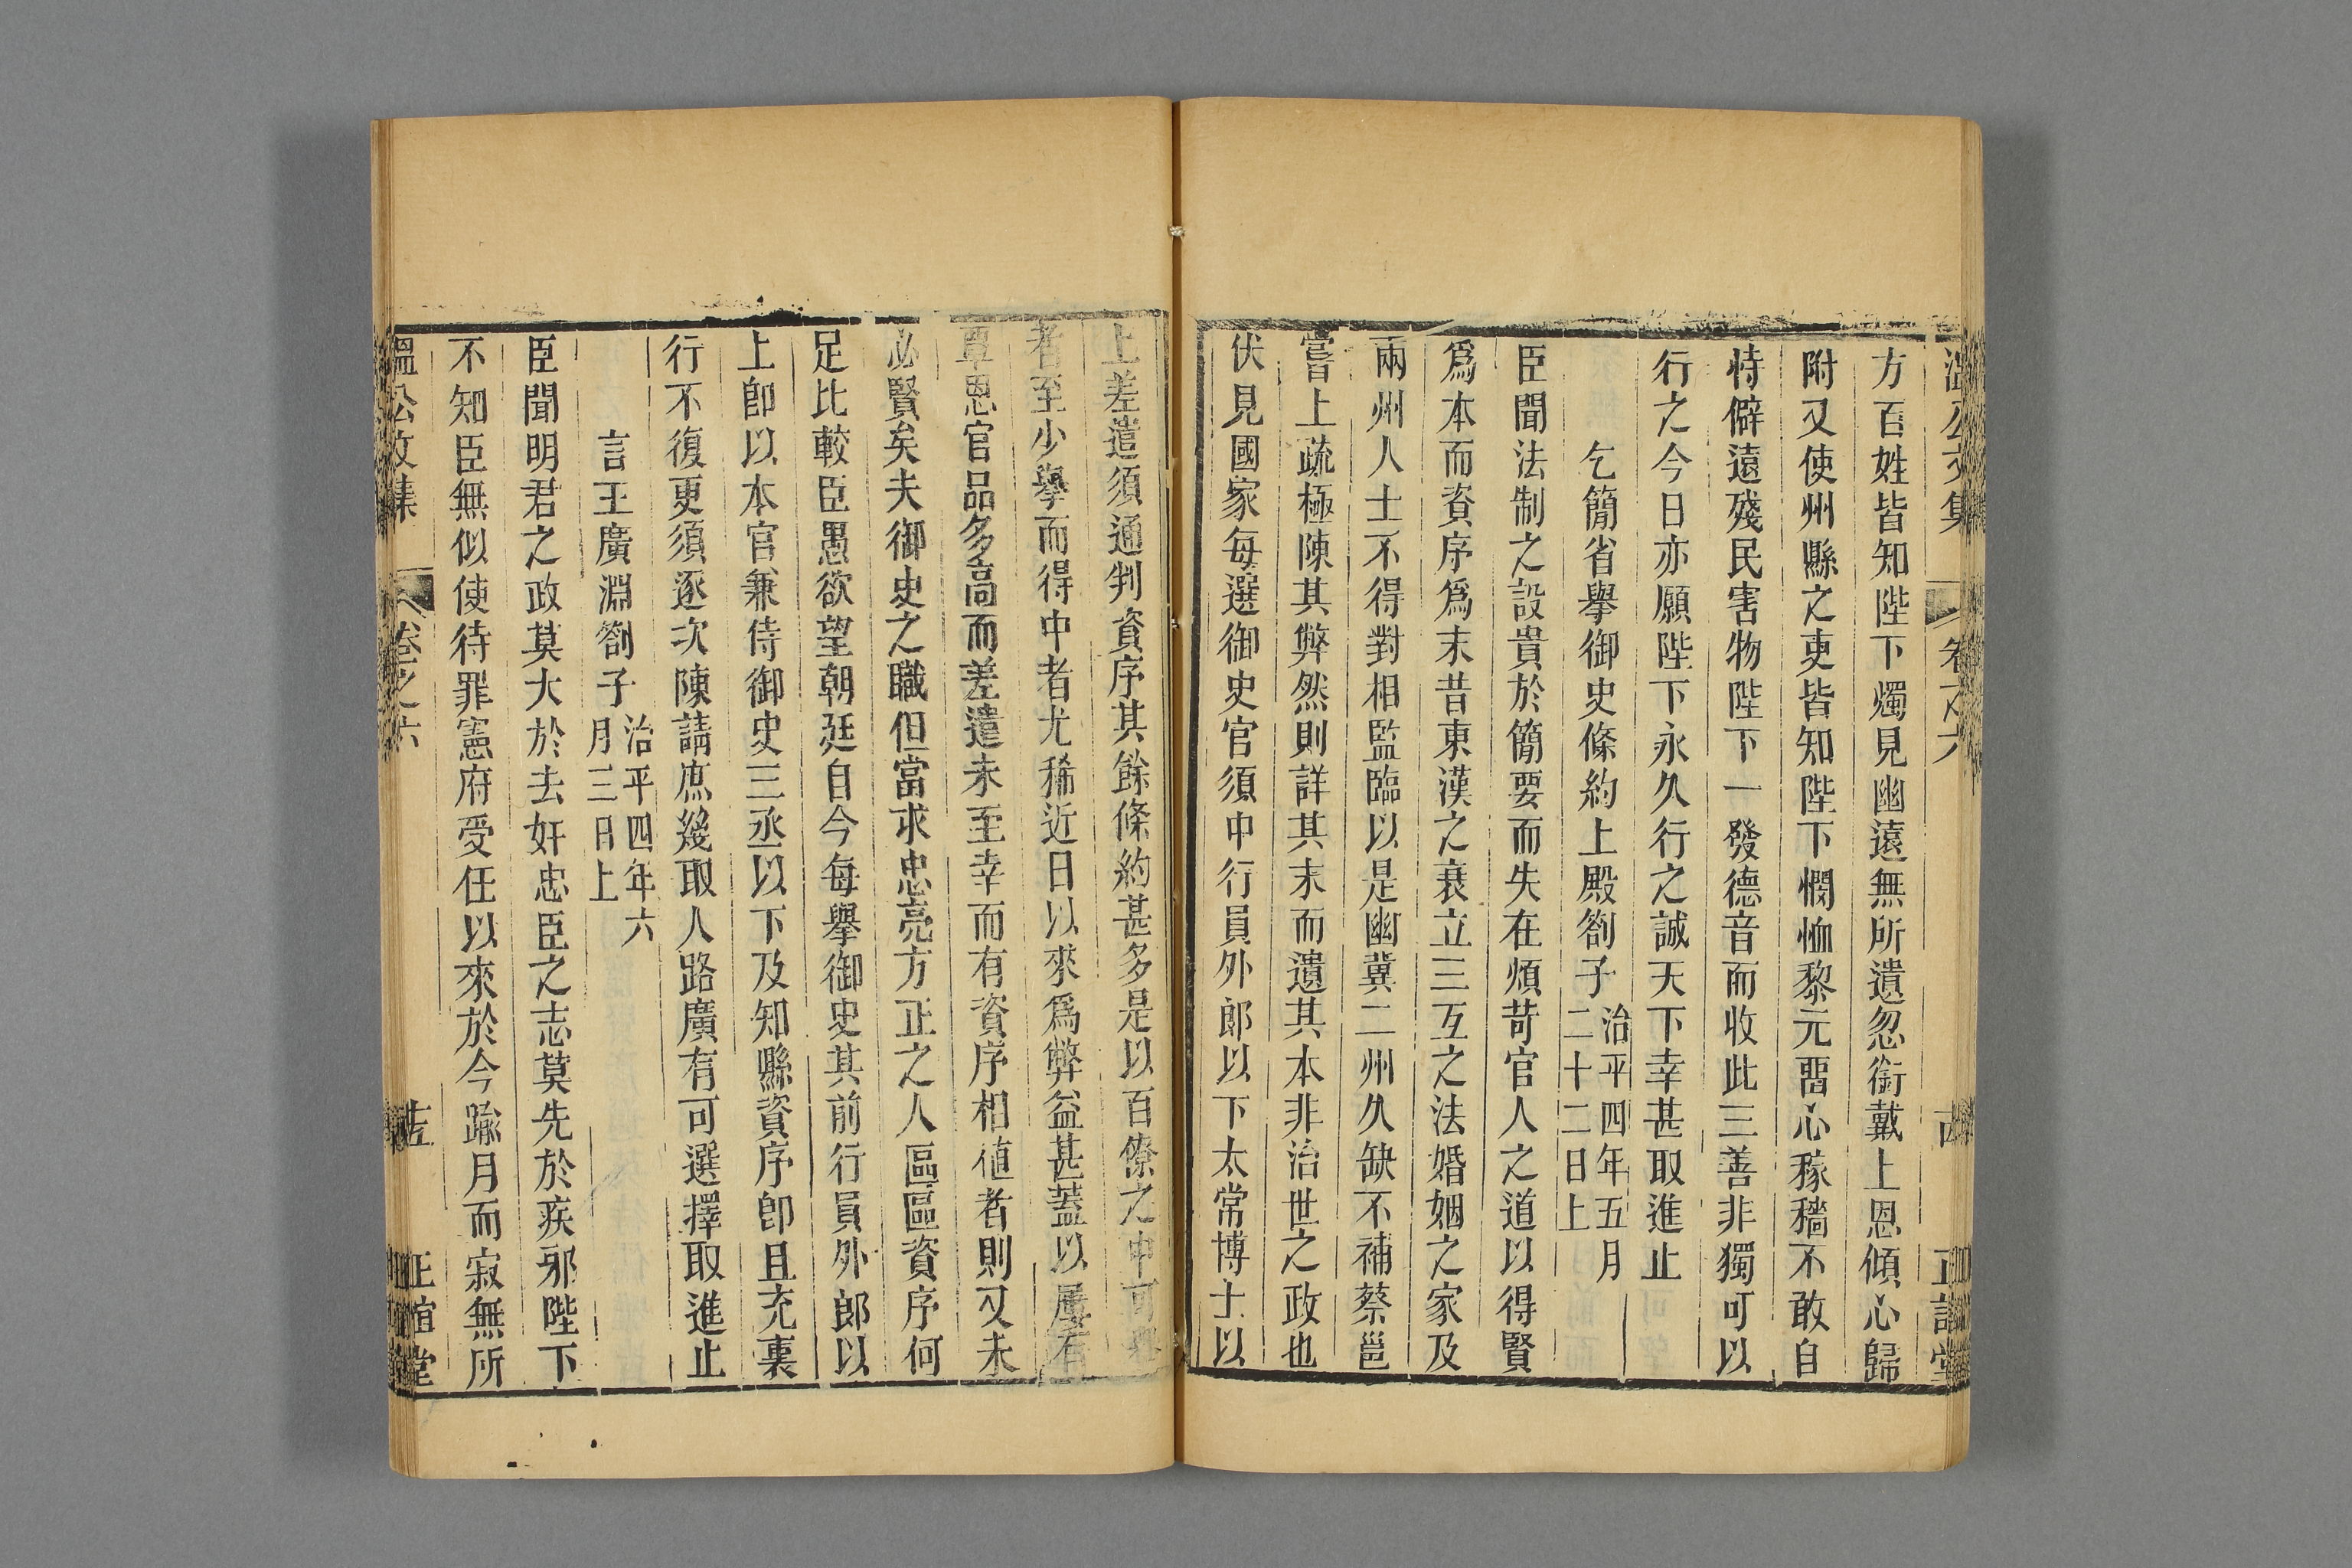 溫公文集 卷之六 古 正誼堂
方百姓皆知陛下燭見幽遠無所遺忽銜戴上恩傾心歸
附又使州縣之吏皆知陛下憫恤黎元畱心稼穡不敢自
恃僻遠殘民害物陛下一發德音而收此三善非獨可以
行之今日亦願陛下永久行之誠天下幸甚取進止
乞簡省舉御史條約上殿劄子治平四年五月
二十二日上
臣聞法制之設貴於簡要而失在煩苛官人之道以得賢
爲本而資序爲末昔東漢之衰立三互之法婚姻之家及
兩州人士不得對相監臨以是幽冀二州久缺不補蔡邕
嘗上疏極陳其弊然則詳其末而遺其本非治世之政也
伏見國家每選御史官須中行員外郎以下太常博士以
上差遣須通判資序其餘條約甚多是以百僚之中可舉
者至少舉而得中者尤稀近日以來爲弊益甚蓋以屢有
覃恩官品多高而差遣未至幸而有資序相値者則又未
必賢矣夫御史之職但當求忠亮方正之人區區資序何
足比較臣愚欲望朝廷自今每舉御史其前行員外郎以
上卽以本官兼侍御史三丞以下及知縣資序卽且充裏
行不復更須逐次陳請庶幾取人路廣有可選擇取進止
言王廣淵劄子治平四年六
月三日上
臣聞明君之政莫大於去奸忠臣之志莫先於疾邪陛下
不知臣無似使待罪憲府受任以來於今踰月而寂無所
溫公文集 卷之六 正誼堂